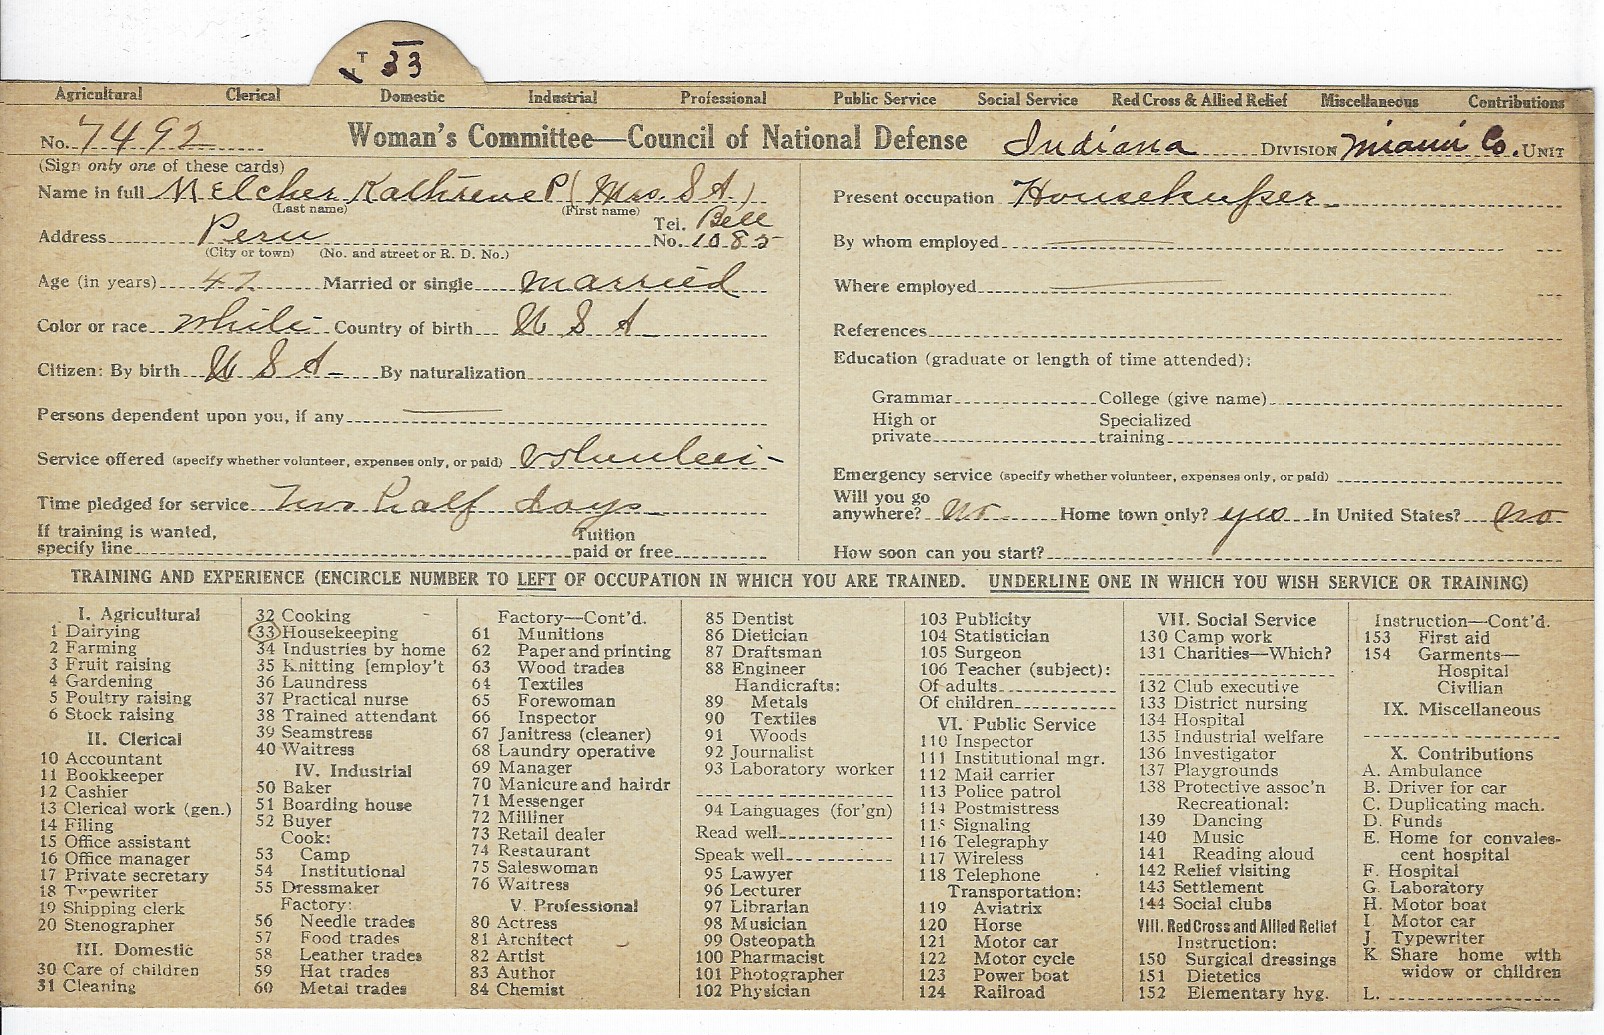 T 33
Agricultural Clerical Domestic Industrial Professional Public Service Social Service Red Cross & Allied Relief Miscellaneous Contributions
No. 7492 Woman's Committee—Council of National Defense Indiana DIVISION Miami Co. UNIT
(Sign only one of these cards)
Name in full Melcher Kathrene P (Mrs. S A)
(Last name) (First name)
Address Peru Tel. No. Bell 1085
(City or town) (No. and street or R. D. No.)
Age (in years) 42 Married or single married
Color or race White Country of birth U S A
Citizen: By birth U S A By naturalization
Persons dependent upon you, if any
Service offered (specify whether volunteer, expenses only, or paid) Volunteer
Time pledged for service Two half days
If training is wanted, specify line Tuition paid or free
Present occupation Housekeeper
By whom employed
Where employed
References
Education (graduate or length of time attended):
Grammar College (give name)
High or private Specialized training
Emergency service (specify whether volunteer, expenses only, or paid)
Will you go anywhere? no Home town only? yes In United States? no
How soon can you start?
TRAINING AND EXPERIENCE (ENCIRCLE NUMBER TO LEFT OF OCCUPATION IN WHICH YOU ARE TRAINED. UNDERLINE ONE IN WHICH YOU WISH SERVICE OR TRAINING)
I. Agricultural
1 Dairying
2 Farming
3 Fruit raising
4 Gardening
5 Poultry raising
6 Stock raising
II. Clerical
10 Accountant
11 Bookkeeper
12 Cashier
13 Clerical work (gen.)
14 Filing
15 Office assistant
16 Office manager
17 Private secretary
18 Typewriter
19 Shipping clerk
20 Stenographer
III. Domestic
30 Care of children
31 Cleaning
32 Cooking
33 Housekeeping
34 Industries by home
35 Knitting [employ't
36 Laundress
37 Practical nurse
38 Trained attendant
39 Seamstress
40 Waitress
IV. Industrial
50 Baker
51 Boarding house
52 Buyer
Cook:
53 Camp
54 Institutional
55 Dressmaker
Factory:
56 Needle trades
57 Food trades
58 Leather trades
59 Hat trades
60 Metal trades
Factory—Cont'd.
61 Munitions
62 Paper and printing
63 Wood trades
64 Textiles
65 Forewoman
66 Inspector
67 Janitress (cleaner)
68 Laundry operative
69 Manager
70 Manicure and hairdr
71 Messenger
72 Milliner
73 Retail dealer
74 Restaurant
75 Saleswoman
76 Waitress
V. Professional
80 Actress
81 Architect
82 Artist
83 Author
84 Chemist
85 Dentist
86 Dietician
87 Draftsman
88 Engineer
Handicrafts:
89 Metals
90 Textiles
91 Woods
92 Journalist
93 Laboratory worker
94 Languages (for'gn)
Read well
Speak well
95 Lawyer
96 Lecturer
97 Librarian
98 Musician
99 Osteopath
100 Pharmacist
101 Photographer
102 Physician
103 Publicity
104 Statistician
105 Surgeon
106 Teacher (subject):
Of adults
Of children
VI. Public Service
110 Inspector
111 Institutional mgr.
112 Mail carrier
113 Police patrol
114 Postmistress
115 Signaling
116 Telegraphy
117 Wireless
118 Telephone
Transportation:
119 Aviatrix
120 Horse
121 Motor car
122 Motor cycle
123 Power boat
124 Railroad
VII. Social Service
130 Camp work
131 Charities—Which?
132 Club executive
133 District nursing
134 Hospital
135 Industrial welfare
136 Investigator
137 Playgrounds
138 Protective assoc'n
Recreational:
139 Dancing
140 Music
141 Reading aloud
142 Relief visiting
143 Settlement
144 Social clubs
VIII. Red Cross and Allied Relief
Instruction:
150 Surgical dressings
151 Dietetics
152 Elementary hyg.
Instruction—Cont'd.
153 First aid
154 Garments—
Hospital
Civilian
IX. Miscellaneous
X. Contributions
A. Ambulance
B. Driver for car
C. Duplicating mach.
D. Funds
E. Home for convales-
cent hospital
F. Hospital
G. Laboratory
H. Motor boat
I. Motor car
J. Typewriter
K. Share home with
widow or children
L.